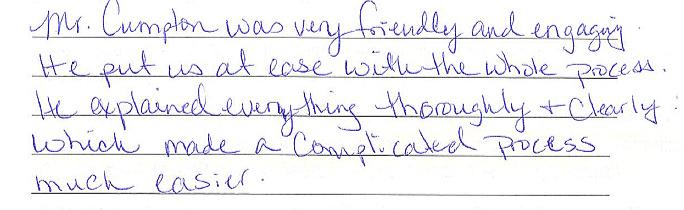 Mr. Cumpton was very friendly and engaging.
He put us at ease with the whole process.
He explained everything thoroughly + clearly.
which made a complicated process
much easier.